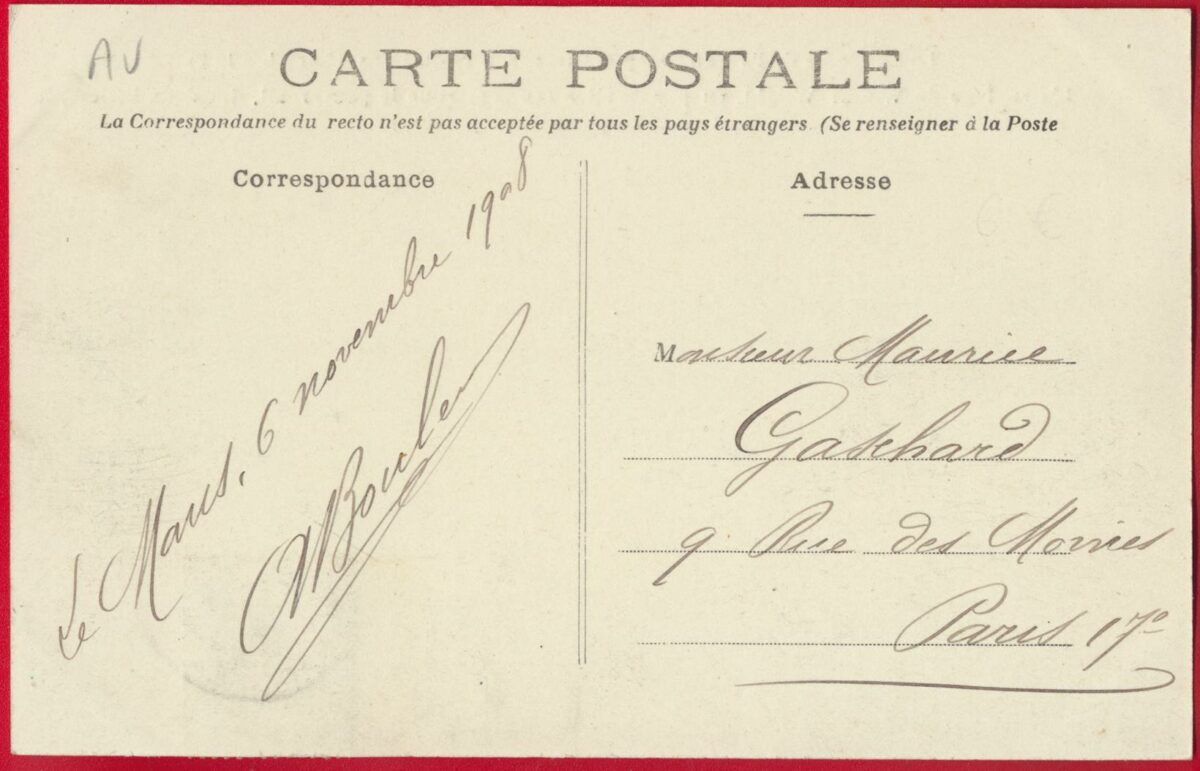 AV
CARTE POSTALE
La Correspondance du recto n'est pas acceptée par tous les pays étrangers (Se renseigner à la Poste
Correspondance
Le Mans, 6 novembre 1908
Adresse
Monsieur Maurice
Gaschard
9 Rue des Moines
Paris 17e